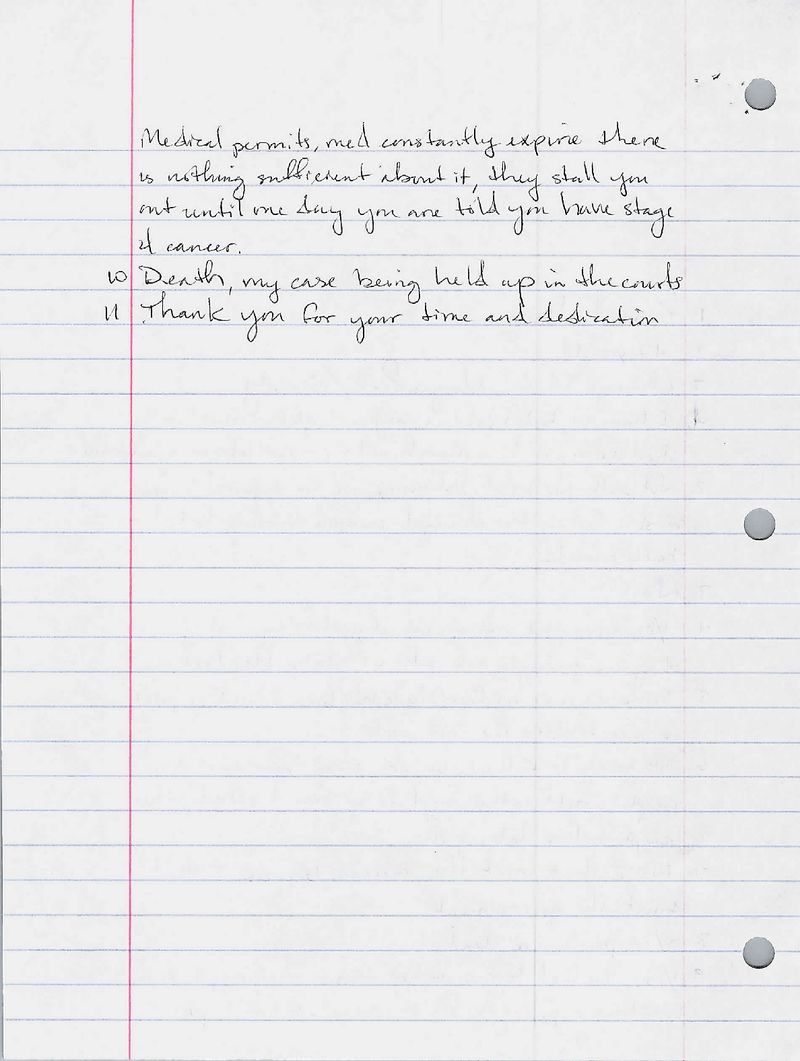 Medical permits, med constantly expire there
is nothing sufficient about it, they stall you
out until one day you are told you have stage
4 cancer.
10 Death, my case being held up in the courts
11 Thank you for your time and dedication